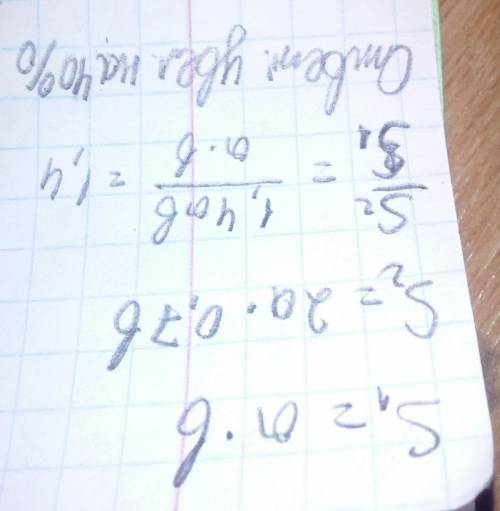 S₁ = a · b
S₂ = 2a · 0,7b
S₂/S₁ = 1,4ab/a · b = 1,4
Ответ: увел. на 40%